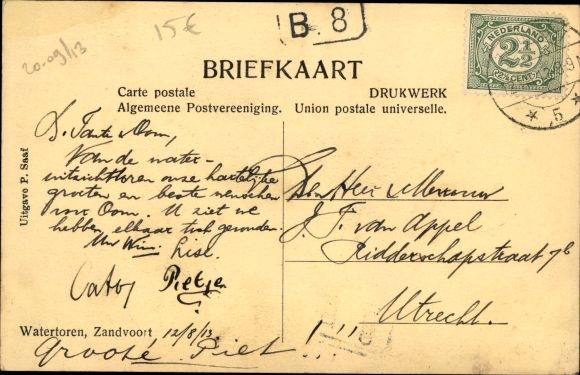 15€
B. 8
20-09/13
NEDERLAND
2½
(2½ CENT)
5
BRIEFKAART
Carte postale
Algemeene Postvereeniging.
DRUKWERK
Union postale universelle.
Uitgave P. Saaf
L. Tante & Oom,
Van de water-
uitzichttoren onze hartelijke
groeten en beste wenschen
voor Oom. U ziet we
hebben elkaar toch gevonden.
Uw Wim. Lise.
Catoj Pietje
Den Heer & Mevrouw
J. F. van Appel
Ridderschapstraat 7b
Utrecht.
Watertoren, Zandvoort 12/8/13
Groote Piet!!!